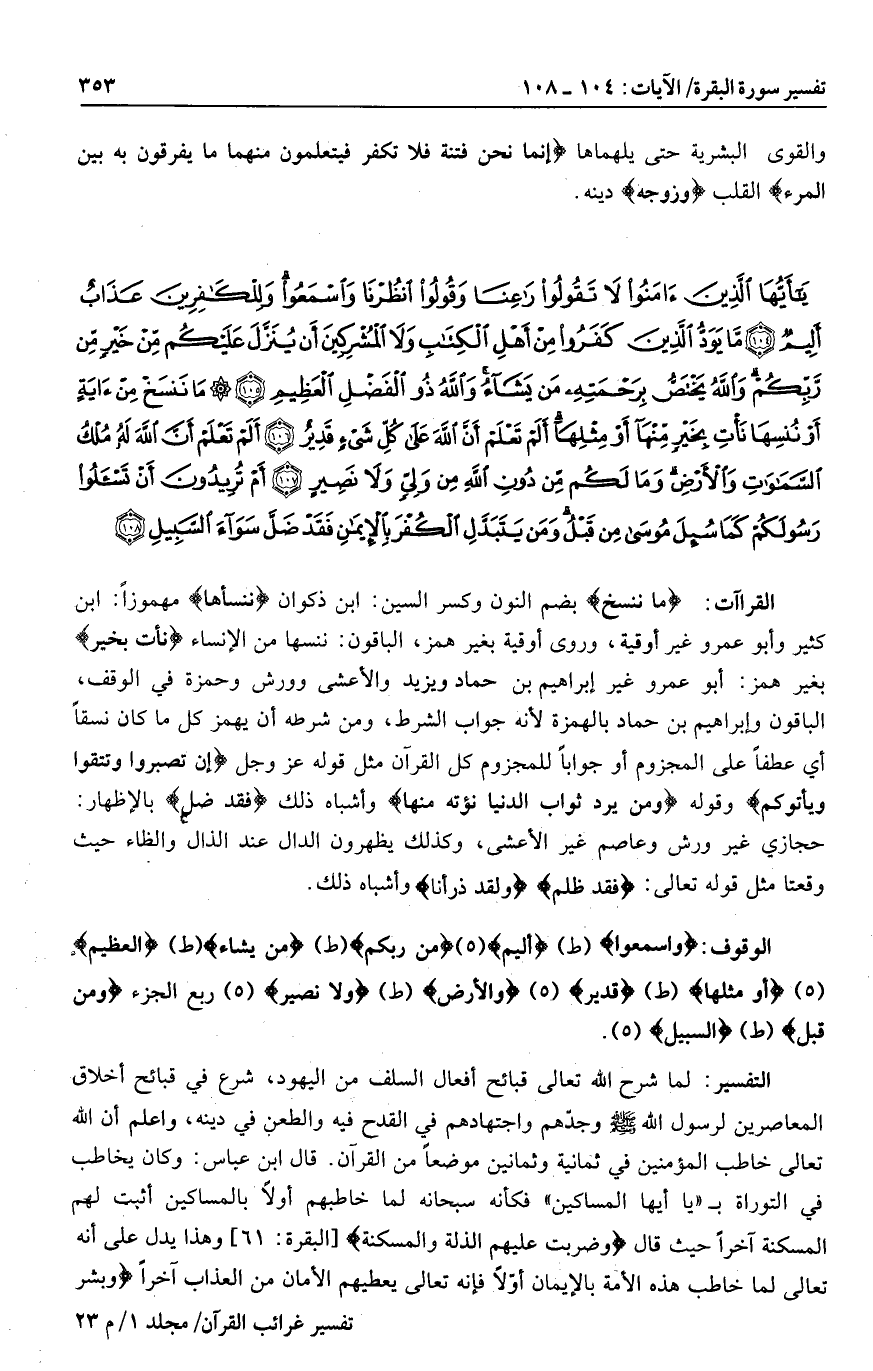 تفسير سورة البقرة/ الآيات: ١٠٤ ـ ١٠٨ ٣٥٣
والقوى البشرية حتى يلهماها ﴿إنما نحن فتنة فلا تكفر فيتعلمون منهما ما يفرقون به بين
المرء﴾ القلب ﴿وزوجه﴾ دينه.
يَٰٓأَيُّهَا ٱلَّذِينَ ءَامَنُوا۟ لَا تَقُولُوا۟ رَٰعِنَا وَقُولُوا۟ ٱنظُرْنَا وَٱسْمَعُوا۟ۗ وَلِلْكَٰفِرِينَ عَذَابٌ
أَلِيمٌ ﴿١٠٤﴾ مَّا يَوَدُّ ٱلَّذِينَ كَفَرُوا۟ مِنْ أَهْلِ ٱلْكِتَٰبِ وَلَا ٱلْمُشْرِكِينَ أَن يُنَزَّلَ عَلَيْكُم مِّنْ خَيْرٍ مِّن
رَّبِّكُمْۗ وَٱللَّهُ يَخْتَصُّ بِرَحْمَتِهِۦ مَن يَشَآءُۚ وَٱللَّهُ ذُو ٱلْفَضْلِ ٱلْعَظِيمِ ﴿١٠٥﴾ ۞ مَا نَنسَخْ مِنْ ءَايَةٍ
أَوْ نُنسِهَا نَأْتِ بِخَيْرٍ مِّنْهَآ أَوْ مِثْلِهَآۗ أَلَمْ تَعْلَمْ أَنَّ ٱللَّهَ عَلَىٰ كُلِّ شَىْءٍ قَدِيرٌ ﴿١٠٦﴾ أَلَمْ تَعْلَمْ أَنَّ ٱللَّهَ لَهُۥ مُلْكُ
ٱلسَّمَٰوَٰتِ وَٱلْأَرْضِۗ وَمَا لَكُم مِّن دُونِ ٱللَّهِ مِن وَلِىٍّ وَلَا نَصِيرٍ ﴿١٠٧﴾ أَمْ تُرِيدُونَ أَن تَسْـَٔلُوا۟
رَسُولَكُمْ كَمَا سُئِلَ مُوسَىٰ مِن قَبْلُۗ وَمَن يَتَبَدَّلِ ٱلْكُفْرَ بِٱلْإِيمَٰنِ فَقَدْ ضَلَّ سَوَآءَ ٱلسَّبِيلِ ﴿١٠٨﴾
القراآت: ﴿ما ننسخ﴾ بضم النون وكسر السين: ابن ذكوان ﴿ننسأها﴾ مهموزاً: ابن
كثير وأبو عمرو غير أوقية، وروى أوقية بغير همز، الباقون: ننسها من الإنساء ﴿نأت بخير﴾
بغير همز: أبو عمرو غير إبراهيم بن حماد ويزيد والأعشى وورش وحمزة في الوقف،
الباقون وإبراهيم بن حماد بالهمزة لأنه جواب الشرط، ومن شرطه أن يهمز كل ما كان نسقاً
أي عطفاً على المجزوم أو جواباً للمجزوم كل القرآن مثل قوله عز وجل ﴿إن تصبروا وتتقوا
ويأتوكم﴾ وقوله ﴿ومن يرد ثواب الدنيا نؤته منها﴾ وأشباه ذلك ﴿فقد ضل﴾ بالإظهار:
حجازي غير ورش وعاصم غير الأعشى، وكذلك يظهرون الدال عند الذال والظاء حيث
وقعتا مثل قوله تعالى: ﴿فقد ظلم﴾ ﴿ولقد ذرأنا﴾ وأشباه ذلك.
الوقوف: ﴿واسمعوا﴾ (ط) ﴿أليم﴾(٥)﴿من ربكم﴾(ط) ﴿من يشاء﴾(ط) ﴿العظيم﴾
(٥) ﴿أو مثلها﴾ (ط) ﴿قدير﴾ (٥) ﴿والأرض﴾ (ط) ﴿ولا نصير﴾ (٥) ربع الجزء ﴿ومن
قبل﴾ (ط) ﴿السبيل﴾ (٥).
التفسير: لما شرح الله تعالى قبائح أفعال السلف من اليهود، شرع في قبائح أخلاق
المعاصرين لرسول الله ﷺ وجدّهم واجتهادهم في القدح فيه والطعن في دينه، واعلم أن الله
تعالى خاطب المؤمنين في ثمانية وثمانين موضعاً من القرآن. قال ابن عباس: وكان يخاطب
في التوراة بـ «يا أيها المساكين» فكأنه سبحانه لما خاطبهم أولاً بالمساكين أثبت لهم
المسكنة آخراً حيث قال ﴿وضربت عليهم الذلة والمسكنة﴾ [البقرة: ٦١] وهذا يدل على أنه
تعالى لما خاطب هذه الأمة بالإيمان أوّلاً فإنه تعالى يعطيهم الأمان من العذاب آخراً ﴿وبشر
تفسير غرائب القرآن/ مجلد ١/ م ٢٣